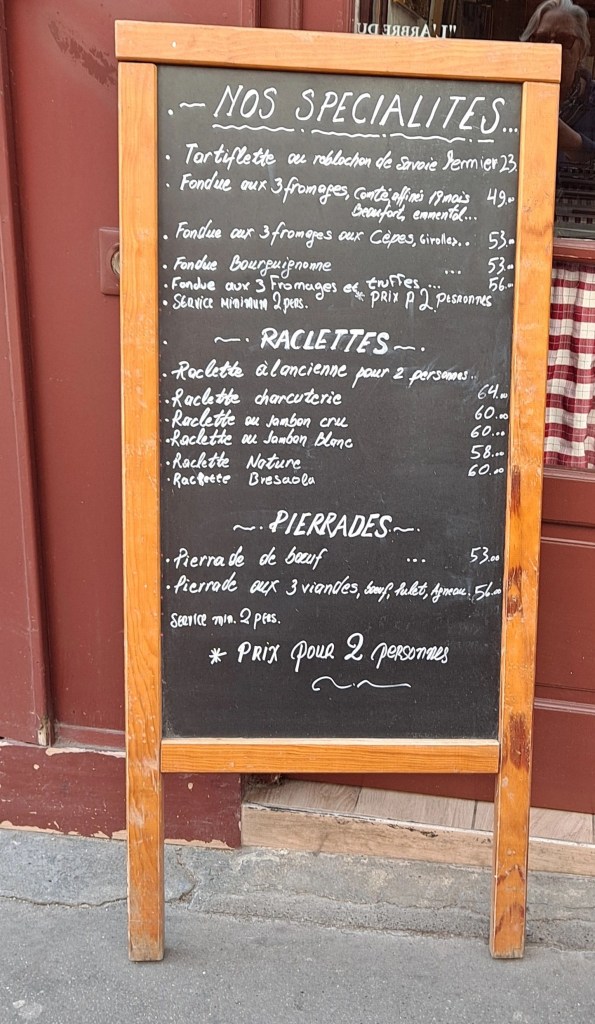 "L'ARBRE DU
NOS SPECIALITES...
. Tartiflette au roblochon de Savoie Fermier 23.
. Fondue aux 3 fromages, Comté affinés 19 mais 49.00
Beaufort, emmental...
. Fondue aux 3 fromages aux Cèpes, Girolles.. 53.00
. Fondue Bourguignonne ... 53.00
. Fondue aux 3 Fromages et truffes... 56.00
. SERVICE MINIMUM 2 pers. * PRIX P 2 PESRONNES
RACLETTES
. Raclette à l'ancienne pour 2 personnes...
. Raclette charcuterie 64.00
. Raclette au Jambon cru 60.00
. Raclette au Jambon Blanc 60.00
. Raclette Nature 58.00
. Raclette Bresaola 60.00
PIERRADES
. Pierrade de bœuf ... 53.00
. Pierrade aux 3 viandes, bœuf, Pulet, Agneau. 56.00
SERVICE MIN. 2 pers.
* PRIX pour 2 personnes